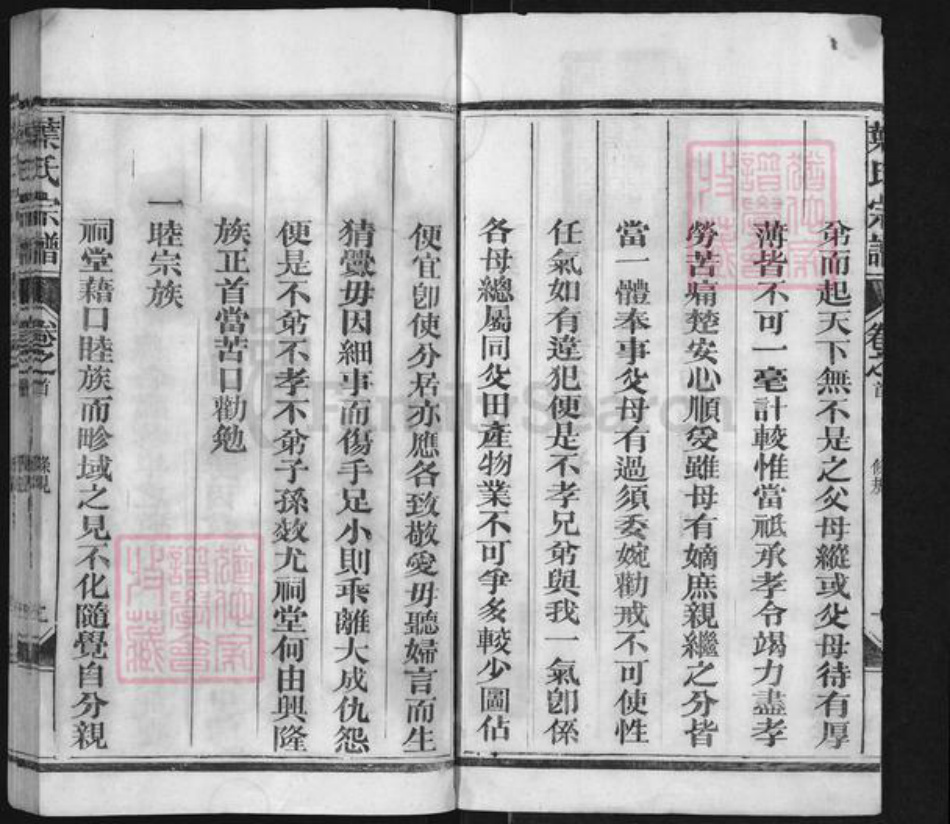 葉氏宗譜 卷之首 條規
弟而起天下無不是之父母縱或父母待有厚
薄皆不可一毫計較惟當祗承孝令竭力盡孝
勞苦痛楚安心順受雖母有嫡庶親繼之分皆
當一體奉事父母有過須委婉勸戒不可使性
任氣如有違犯便是不孝兄弟與我一氣卽係
各母總屬同父田產物業不可爭多較少圖佔
便宜卽使分居亦應各致敬愛毋聽婦言而生
猜釁毋因細事而傷手足小則乖離大成仇怨
便是不弟不孝不弟子孫效尤祠堂何由興隆
族正首當苦口勸勉
一睦宗族
祠堂藉口睦族而畛域之見不化隨覺自分親
葉氏宗譜 卷之首 條規
猶他家譜學會收藏
猶他家譜學會收藏
FamilySearch